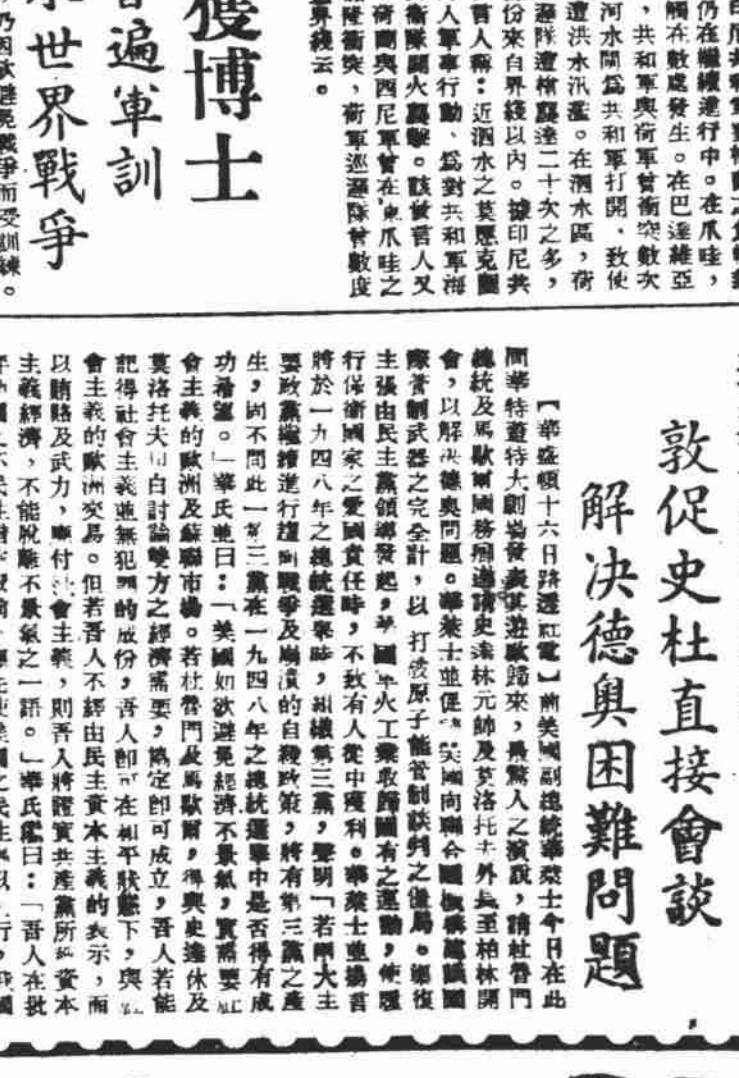 印尼共和
仍在繼續進行中。在爪哇,
觸在數處發生。在巴達維亞
,共和軍與荷軍曾衝突數次
河水閘爲共和軍打開、致使
遭洪水汎濫。在泗水區,荷
邏隊遭槍襲達二十次之多,
份來自界綫以內。據印尼共
言人稱:近泗水之莫
人軍事行動、爲對共和軍海
衛隊開火襲擊。該發言人又
荷蘭與西尼軍曾在東爪哇之
隆衝突,荷軍巡邏隊曾數度
界綫云。
獲博士
普遍軍訓
世界戰爭
乃因欲避免戰爭而受訓練。
敦促史杜直接會談
解決德奧困難問題
【華盛頓十六日路透社電】前美國副總統華萊士今日在此
間華特蓋特大劇場發表其遊歐歸來,最驚人之演說,請杜魯門
總統及馬歇爾國務卿邀請史達林元帥及莫洛托夫外長至柏林開
會,以解決德奧問題。華萊士並促 美國向聯合國機構建議國
際管制武器之完全計,以 打破原子能管制談判之僵局。渠復
主張由民主黨領導發起, 國軍火工業收歸國有之運動,使履
行保衛國家之愛國責任時,不致有人從中獲利。華萊士並揚言
將於一九四八年之總統選舉時,組織第三黨,聲明「若兩大主
要政黨繼續進行趨向戰爭及崩潰的自殺政策,將有第三黨之產
生,尚不問此一第三黨在一九四八年之總統選舉中是否得有成
功希望。」華氏並曰:「美國如欲避免經濟不景氣,實需要社
會主義的歐洲及蘇聯市場。若杜魯門及馬歇爾,得與史達林及
莫洛托夫坦白討論雙方之經濟需要,協定卽可成立,吾人若能
記得社會主義並無犯罪的成份,吾人卽可在和平狀態下,與社
會主義的歐洲交易。但若吾人不經由民主資本主義的表示,而
以賄賂及武力,應付社會主義,則吾人將證實共產黨所 資本
主義經濟,不能脫離不景氣之一語。」華氏續曰:「吾人在批